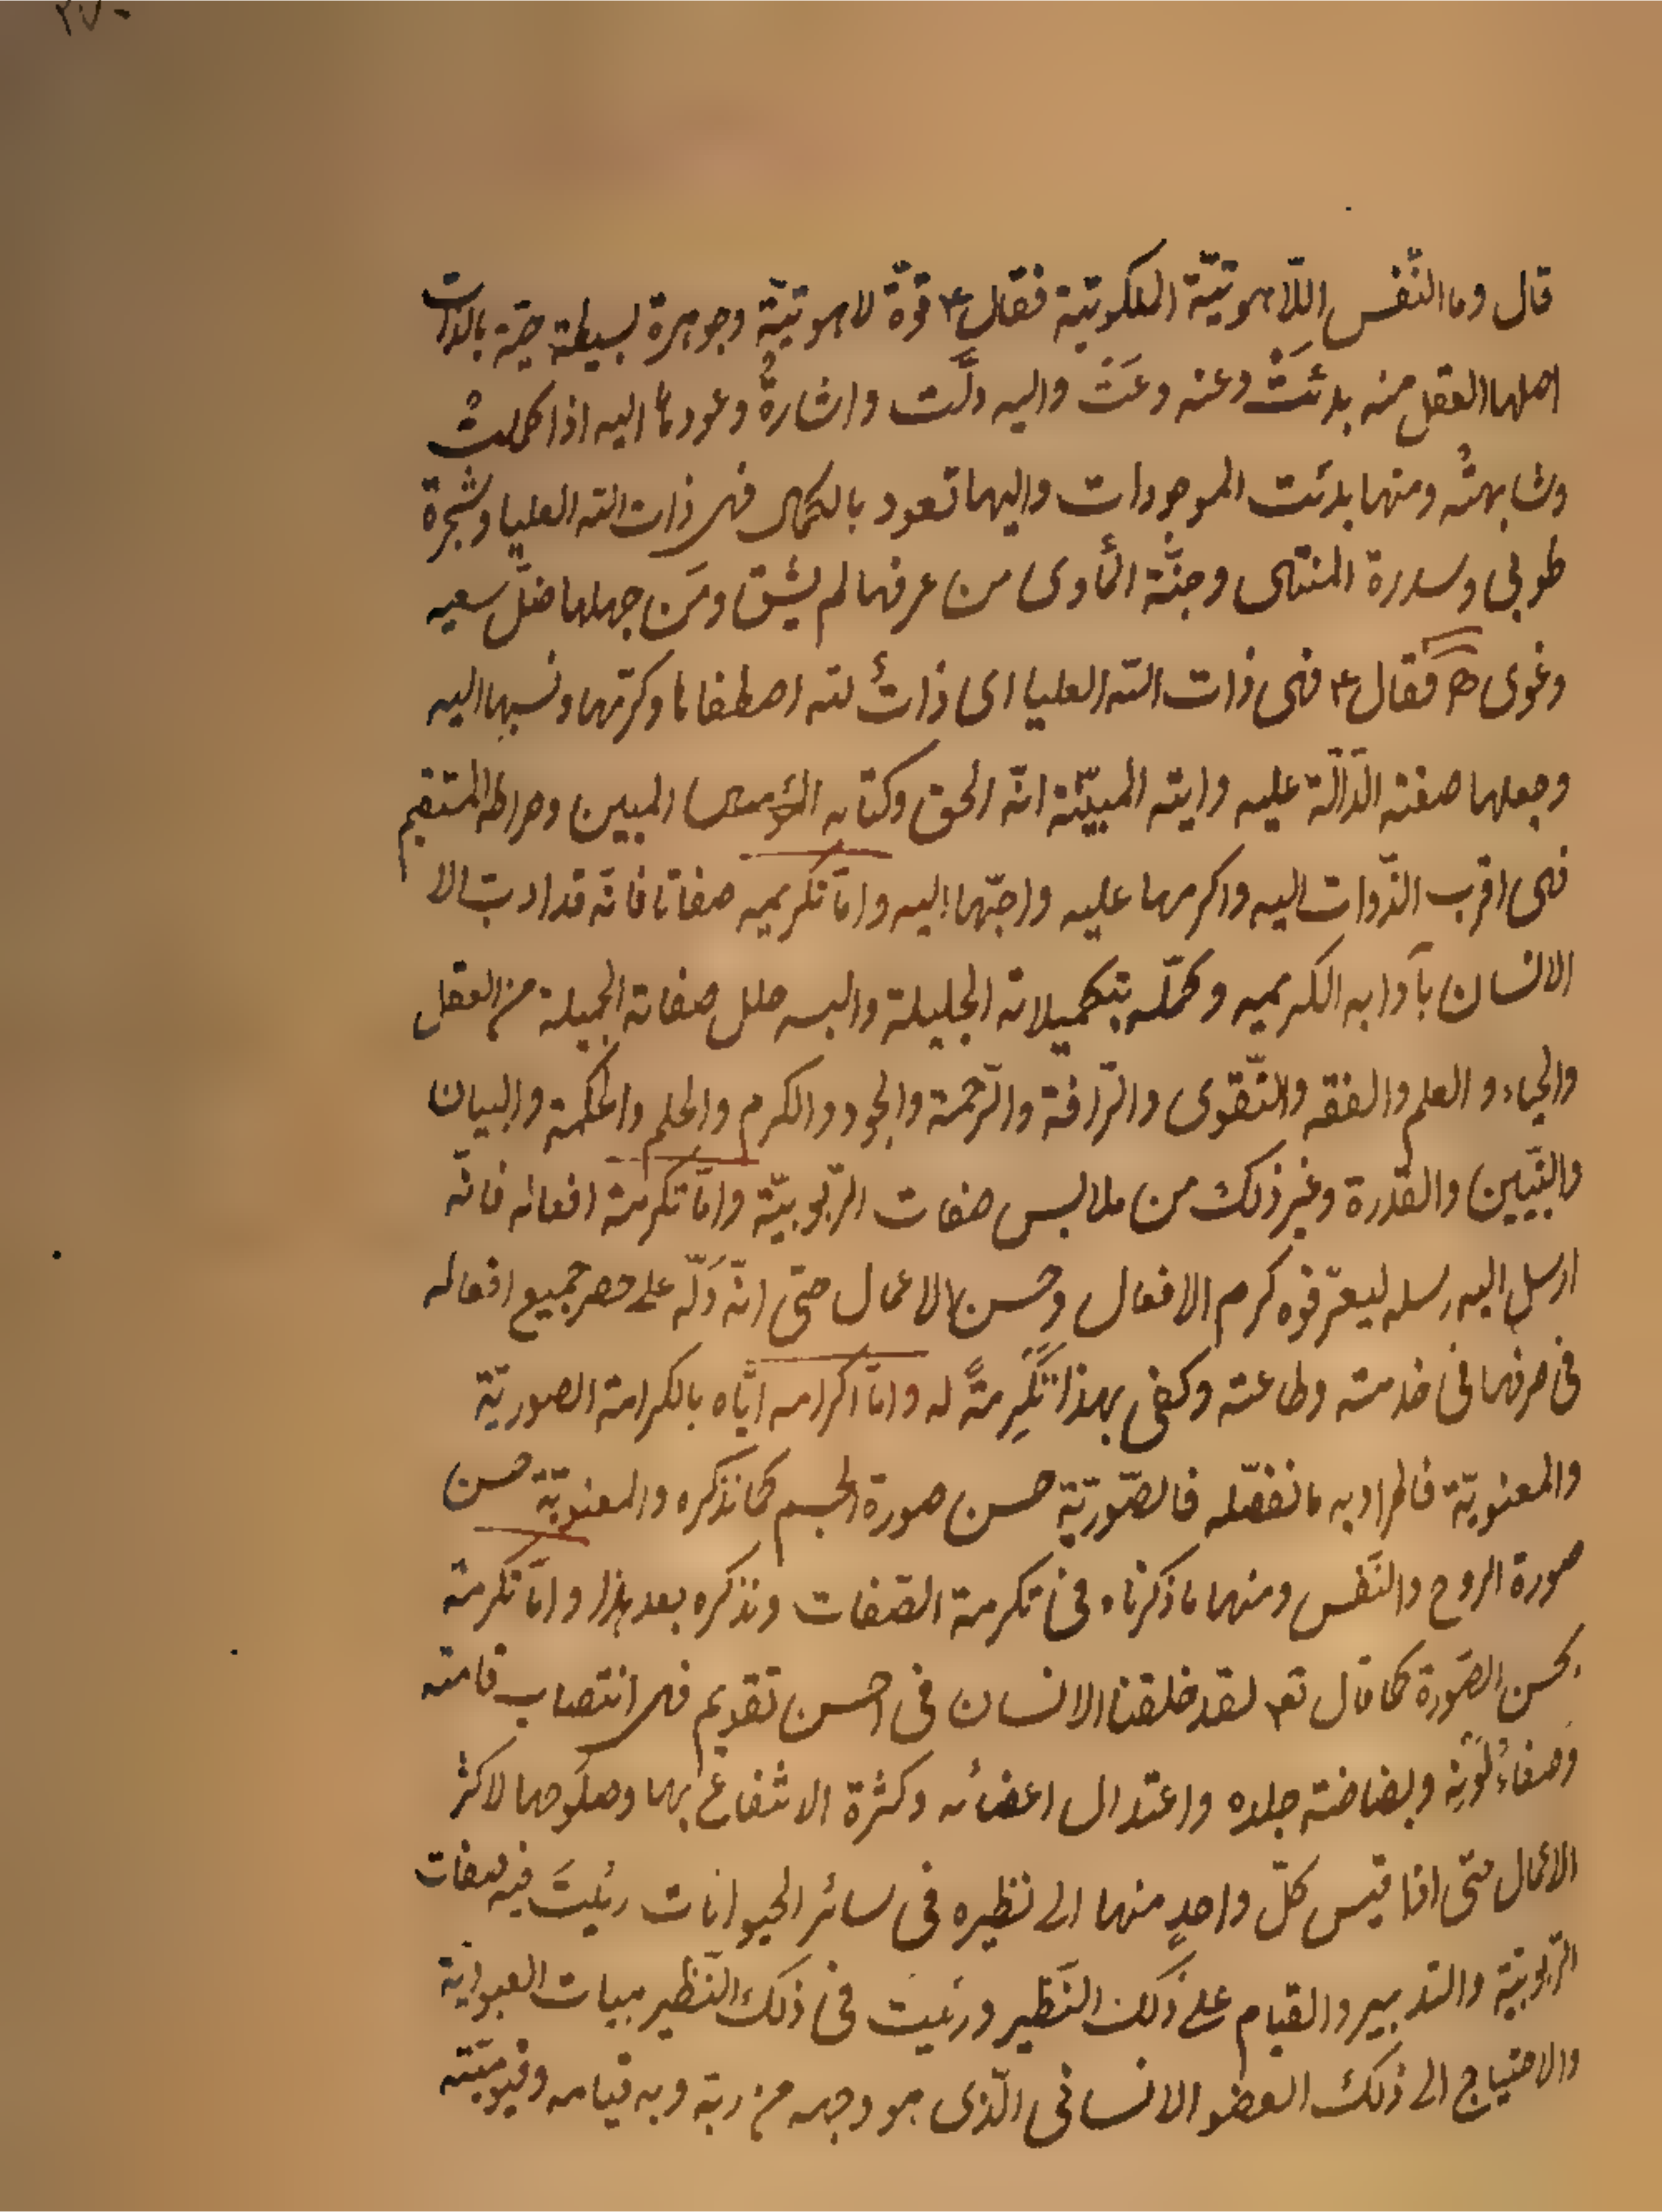 قال وما النّفس اللّاهوتيّة الملكوتية فقال ع قوّة لاهوتيّة وجوهرة بسيطة حيّة بالذات
اصلها العقل منه بدئَتْ وعنه وعَتْ واليه دلَّت واشارةٌ وعودها اليه اذا كملت
وشابهتْه ومنها بدئت الموجودات واليها تعود بالكمال فهى ذات الله العليا وشجرة
طوبى وسدرة المنتهى وجنّة المأوى من عرفها لم يشق ومَن جهلها ضلّ سعيه
وغوى فقال ع فهى ذات الله العليا اى ذاتٌ لله اصطفاها وكرّمها ونسبها اليه
وجعلها صفته الدّالّة عليه وايته المبيّنة انّه الحق وكتابه المبين وصراطه المستقيم
فهى اقرب الذّوات اليه واكرمها عليه واحبّها اليه وامّا تكريمه صفاتا فانّه قد ادب الا
الانسان بآدابه الكريمه وكمّله بتكميلاته الجليلة والبسه حلل صفاته الجميلة من العقل
والحياء و العلم والفقه والتّقوى والرّافة والرّحمة والجود والكرم والحلم والحكمة والبيان
والتبيين والقدرة وغير ذلك من ملابس صفات الرّبوبيّة وامّا تكرمة افعاله فانّه
ارسل اليه رسله ليعرّفوه كرم الافعال وحسن الاعمال حتّى انّه دَلّه على حصر جميع افعاله
فى صرفها فى خدمته وطاعته وكفى بهذا تكْرِمةً له وامّا اكرامه ايّاه بالكرامة الصوريّة
والمعنويّة فالمراد به ما نفصّله فالصّوريّة حسن صورة الجسم كما نذكره والمعنويّة حسن
صورة الروح والنّفس ومنها ما ذكرناه فى تكرمة الصّفات ونذكره بعد هذا وامّا تكرمة
بحسن الصّورة كما قال تع لقد خلقنا الانسان فى احسن تقويم فهى انتصاب قامته
وصفاءُ لَوْنِه وبضاضة جلده واعتدال اعضائه وكثرة الانتفاع بها وصلوحها لاكثر
الاعمال حتّى اذا قيس كلّ واحدٍ منها الى نظيره فى سائر الحيوانات رئيتَ فيه صفات
الرّبوبيّة والتدبير والقيام على ذلك النّظير ورئيت فى ذلك النّظير هيات العبوانيّة
والاحتياج الى ذلك العضو الانسانى الّذى هو وجهه من ربّه وبه قيامه وقيوميّته